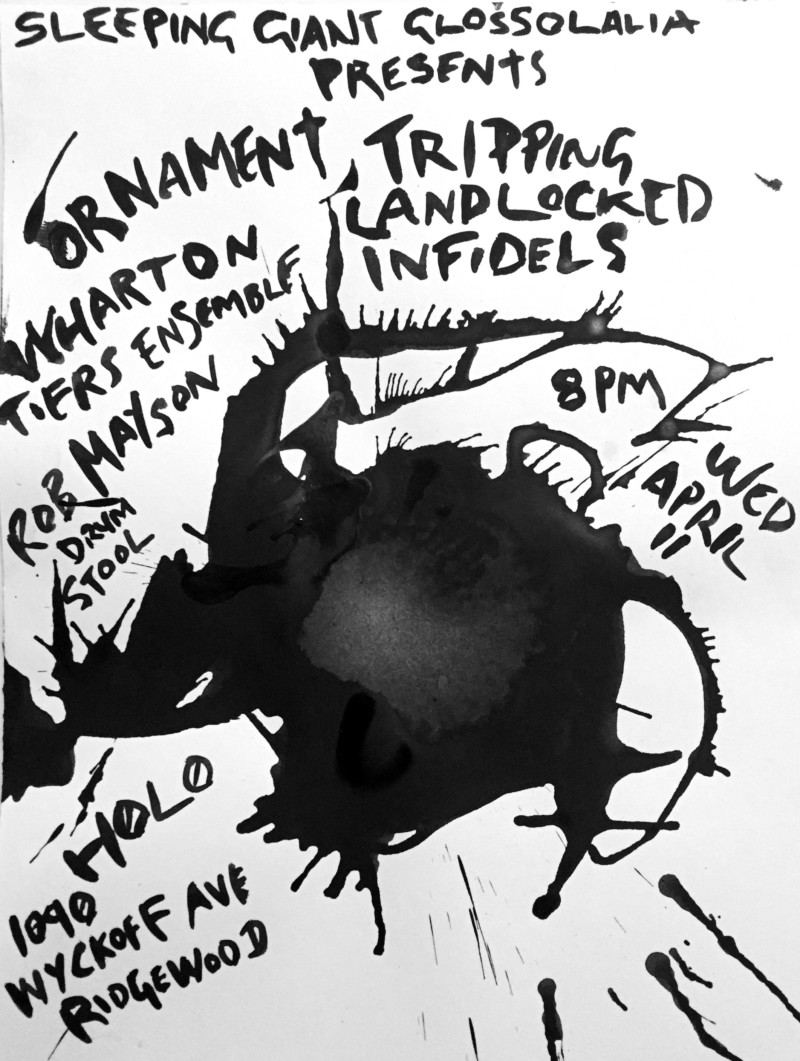 SLEEPING GIANT GLOSSOLALIA
PRESENTS
ORNAMENT
TRIPPING
LANDLOCKED
INFIDELS
WHARTON
TIERS ENSEMBLE
ROB MAYSON
DRUM
STOOL
8PM
WED
APRIL
11
HOLO
1090
WYCKOFF AVE
RIDGEWOOD